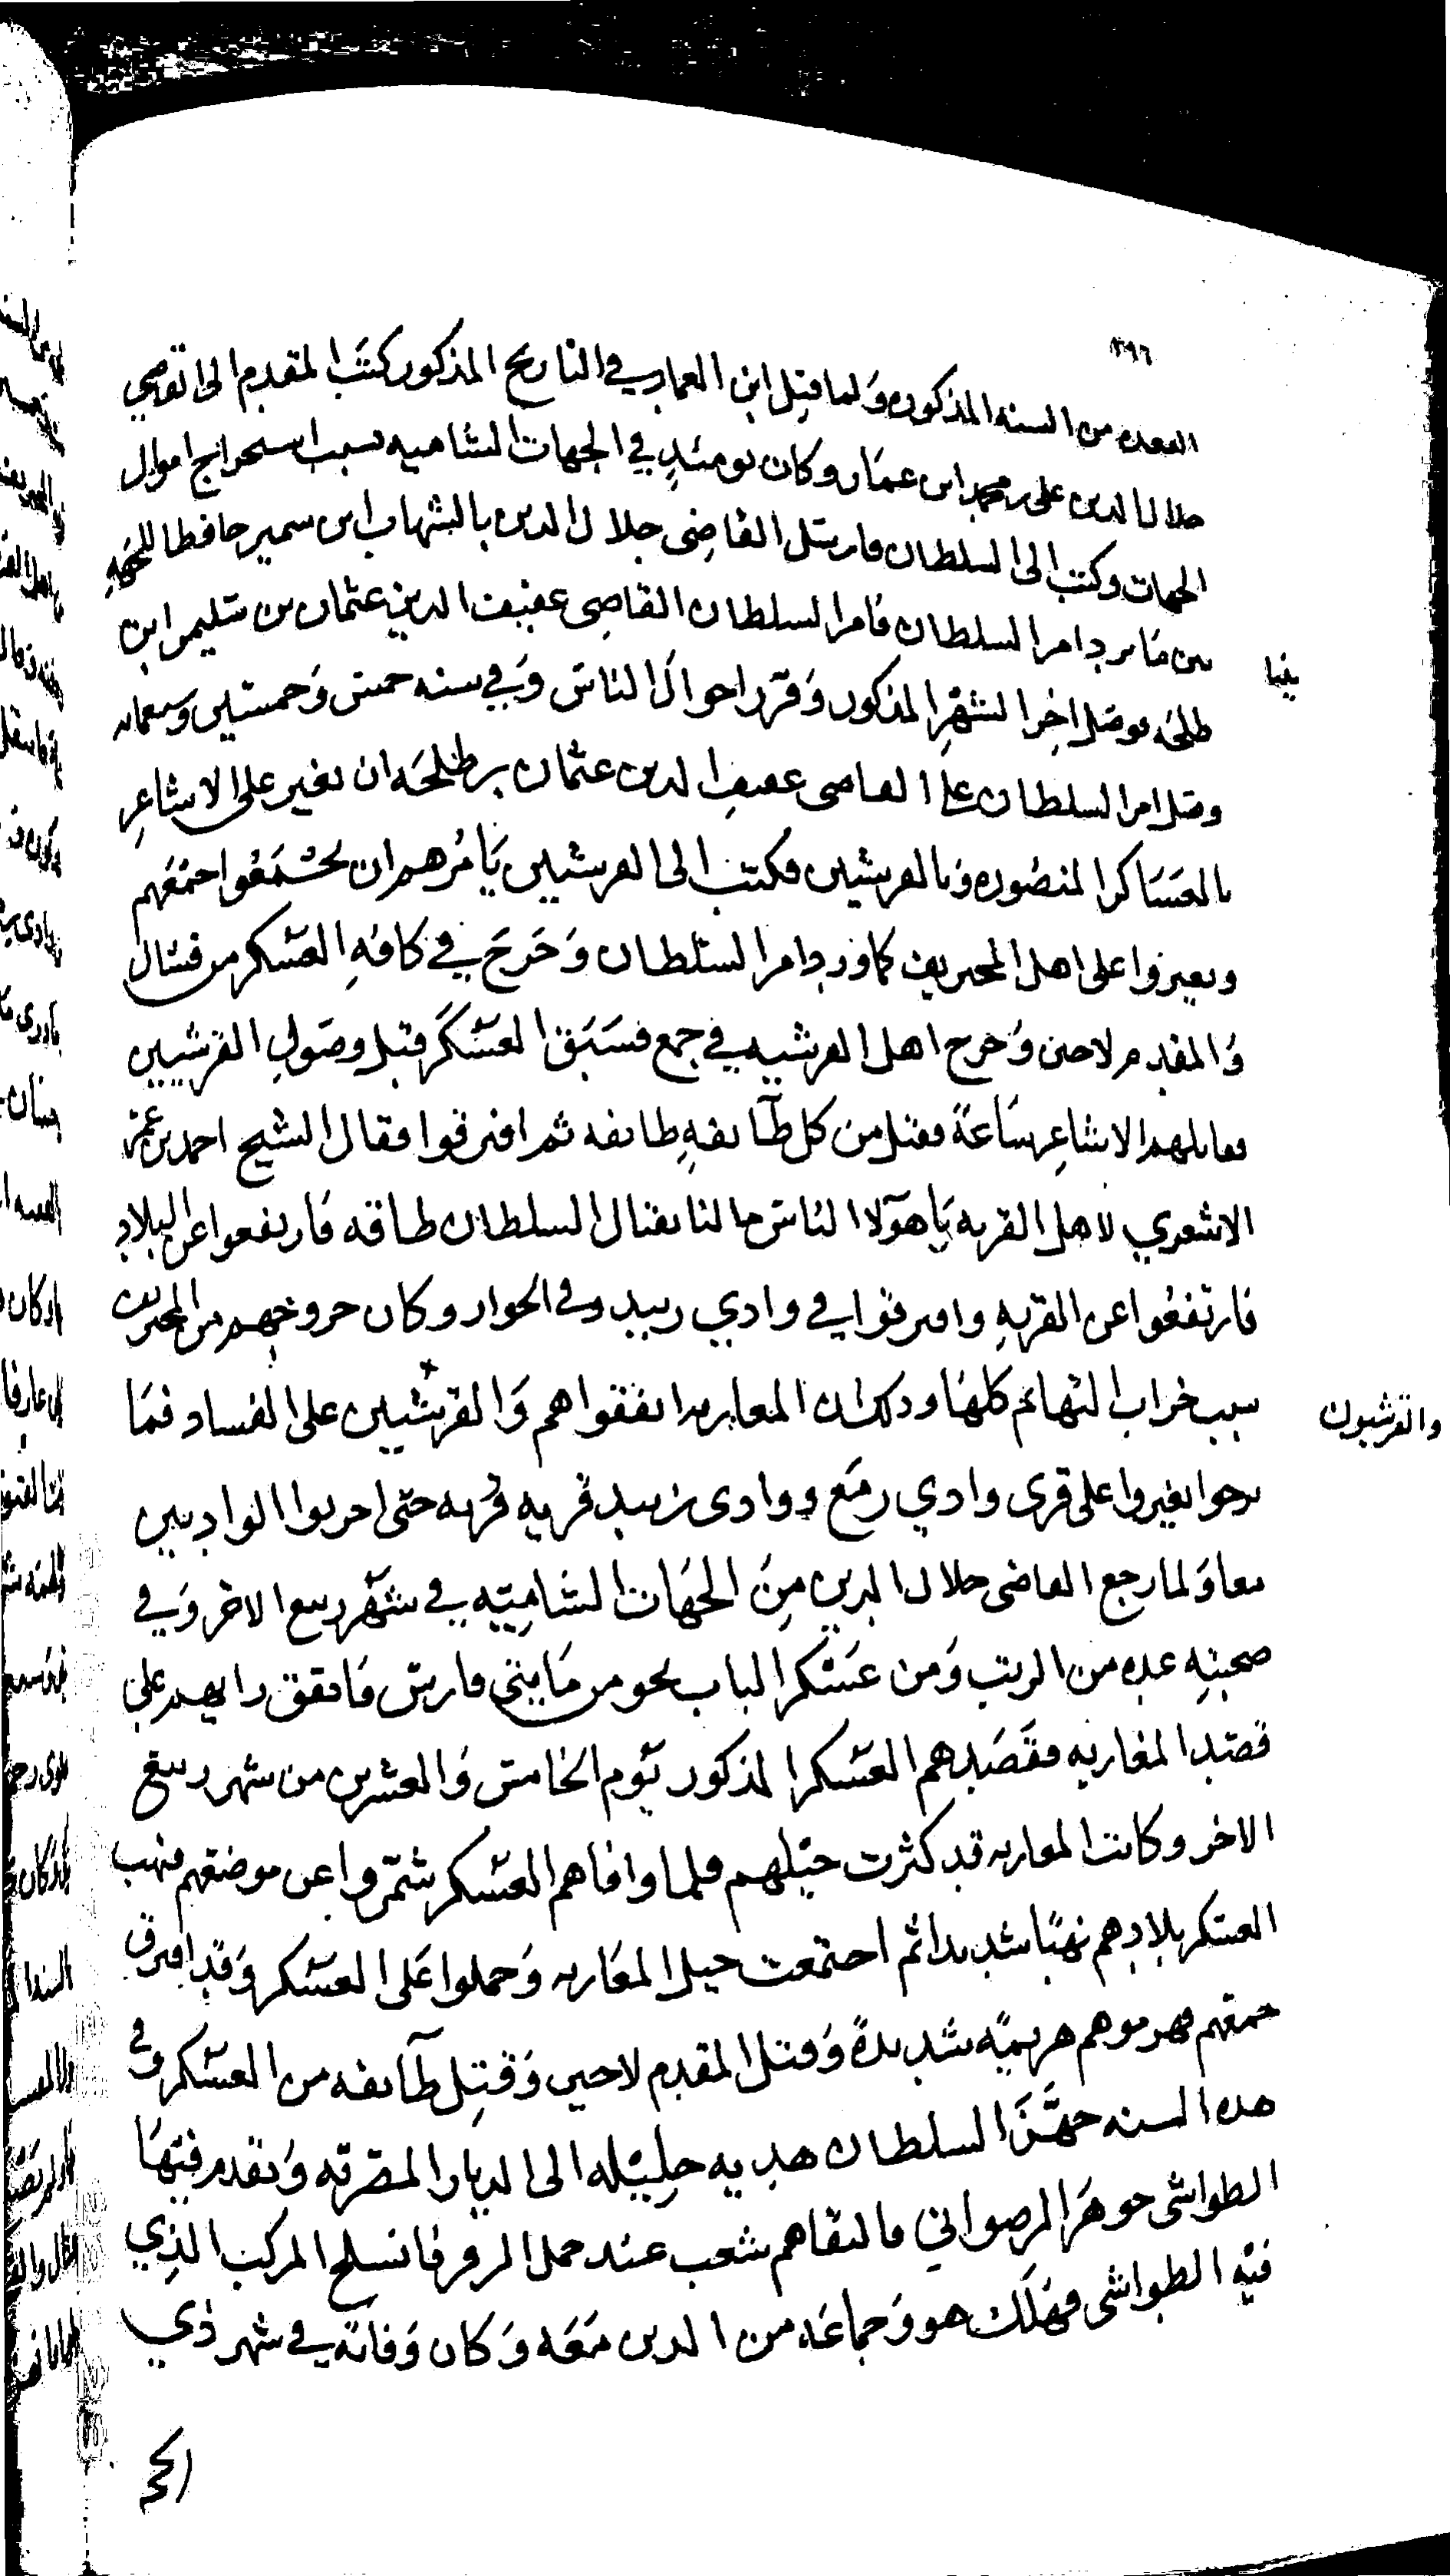 ٣٩٦
القعده من السنه المذكوره ولما قتل ابن العماد في التاريخ المذكور كتب المقدم الى القاضي
جلال الدين على بن محمد ابن عمار وكان يومئذ في الجهات الشاميه بسبب استخراج اموال
الجهات وكتب الى السلطان فارسل القاضى جلال الدين بالشهاب ابن سمير حافظا للجهه
حين ما يرد امر السلطان فامر السلطان القاضى عفيف الدين عثمان بن سليمن ابن
طلحه فوصل اخر الشهر المذكور وقرر احوال الناس وفي سنه خمس وخمسين وسبعمايه
وصل امر السلطان على القاضى عفيف الدين عثمان بن طلحه ان يغير على الاشاعر
بالعساكر المنصوره وبالقرشيين فكتب الى القرشيين يامرهم ان يجتمعوا جمعهم
ويغيروا على اهل المخيريف كما ورد امر السلطان وخرج في كافه العسكر من فشال
والمقدم لاجين وخرج اهل القرشيه في جمع فسبق العسكر قبل وصول القرشيين
فقاتلهم الاشاعر ساعة فقتل من كل طآيفه طايفه ثم افترقوا فقال الشيخ احمد بن عمر
الاشعري لاهل القريه يا هآولا الناس ما لنا بقتال السلطان طاقه فارتفعوا عن البلاد
فارتفعوا عن القريه وافترقوا في وادي زبيد وفي الحوار وكان خروجهم من المخيريف
سبب خراب التهايم كلها وذلك ان المعازبه اتفقوا هم والقرشيين على الفساد فما
والقرشيون
برحوا يغيروا على قرى وادي رمع ووادى زبيد قريه قريه حتى اخربوا الواديين
معا ولما رجع القاضى جلال الدين من الجهات الشاميه في شهر ربيع الاخر وفي
صحبته عده من الرتب ومن عسكر الباب نحو من مايتي فارس فاتفق رايهم على
قصد المعازبه فقصدهم العسكر المذكور يوم الخامس والعشرين من شهر ربيع
الاخر وكانت المعازبه قد كثرت خيلهم فلما وافاهم العسكر شمروا عن موضعهم فنهب
العسكر بلادهم نهبا شديدا ثم اجتمعت خيل المعازبه وحملوا على العسكر وقد افترق
جمعهم فهزموهم هزيمه شديدة وقتل المقدم لاجين وقتل طآيفه من العسكر وفي
هذه السنه جهز السلطان هديه جليله الى الديار المصريه وتقدم فيها
الطواشى جوهر الرضواني فالتقاهم شعب عند جبل الزقر فانسلخ المركب الذي
فيه الطواشى فهلك هو وجماعه من الذين معه وكان وفاته في شهر ذي